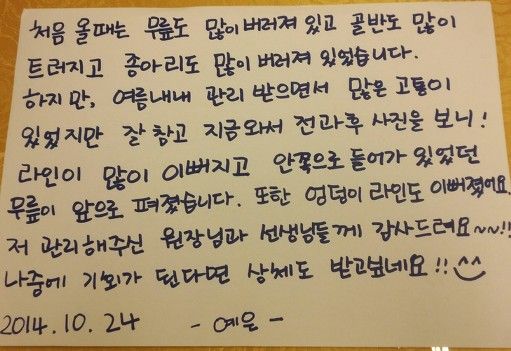 처음 올때는 무릎도 많이 버러져 있고 골반도 많이
트러지고 종아리도 많이 버러져 있었습니다.
하지만, 여름내내 관리 받으면서 많은 고통이
있었지만 잘 참고 지금와서 전과후 사진을 보니!
라인이 많이 이뻐지고 안쪽으로 들어가 있었던
무릎이 앞으로 펴졌습니다. 또한 엉덩이 라인도 이뻐졌어요.
저 관리해주신 원장님과 선생님들께 감사드려요~~!!
나중에 기회가 된다면 상체도 받고싶네요!! ^^
2014.10.24 - 예은 -